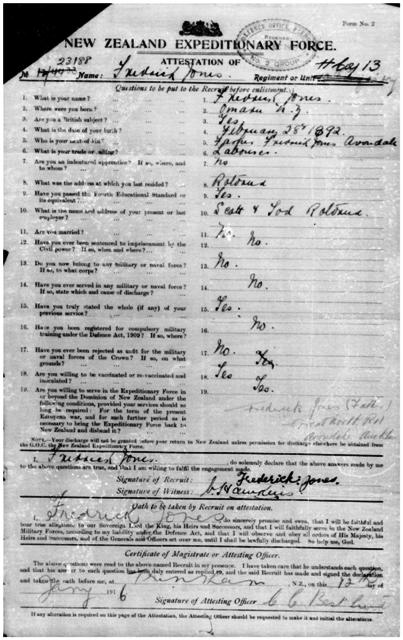 Form No. 2
NEW ZEALAND EXPEDITIONARY FORCE.
ATTESTATION OF
23188
No. Name: Fredrick Jones Regiment or Unit H Coy 13
Questions to be put to the Recruit before enlistment.
1. What is your name? 1. Fredrick Jones.
2. Where were you born? 2. Omaru N.Z.
3. Are you a British subject? 3. Yes.
4. What is the date of your birth? 4. February 28th 1892.
5. Who is your next-of-kin? 5. Father Fredrick Jones Avondale
6. What is your trade or calling? 6. Labourer.
7. Are you an indentured apprentice? If so, where, and 7. No
to whom?
8. What was the address at which you last resided? 8. Rotorua
9. Have you passed the Fourth Educational Standard or 9. Yes.
its equivalent?
10. What is the name and address of your present or last 10. Scott & Tod Rotorua
employer?
11. Are you married? 11. No.
12. Have you ever been sentenced to imprisonment by the 12. No.
Civil power? If so, when and where?
13. Do you now belong to any military or naval force? 13. No.
If so, to what corps?
14. Have you ever served in any military or naval force? 14. No.
If so, state which and cause of discharge?
15. Have you truly stated the whole (if any) of your 15. Yes.
previous service?
16. Have you been registered for compulsory military 16. No.
training under the Defence Act, 1909? If so, where?
17. Have you ever been rejected as unfit for the military 17. No.
or naval forces of the Crown? If so, on what
grounds?
18. Are you willing to be vaccinated or re-vaccinated and 18. Yes
inoculated?
19. Are you willing to serve in the Expeditionary Force in 19. Yes.
or beyond the Dominion of New Zealand under the
following conditions, provided your services should
so long be required: For the term of the present
European war, and for such further period as is
necessary to bring the Expeditionary Force back
to New Zealand and disband it?
Frederick Jones (Father)
Great North Rd
Avondale Auckland
NOTE.—Your discharge will not be granted before your return to New Zealand unless permission for discharge elsewhere be obtained from
the G.O.C. the New Zealand Expeditionary Force.
I, Fredrick Jones, do solemnly declare that the above answers made by me
to the above questions are true, and that I am willing to fulfil the engagement made.
Signature of Recruit: Frederick Jones.
Signature of Witness:
Oath to be taken by Recruit on attestation.
I, Fredrick Jones, do sincerely promise and swear, that I will be faithful and
bear true allegiance to our Sovereign Lord the King, his Heirs and Successors, and that I will faithfully serve in the New Zealand
Military Forces, according to my liability under the Defence Act, and that I will observe and obey all orders of His Majesty, his
Heirs and Successors, and of the Generals and Officers set over me, until I shall be lawfully discharged. So help me, God.
Certificate of Magistrate or Attesting Officer.
The above questions were read to the above named Recruit in my presence. I have taken care that he understands each question,
and that his answer to each question has been duly entered as replied to, and the said Recruit has made and signed the declaration
and taken the oath before me, at Trentham N.Z., on this 12th day of
Jany 1916
Signature of Attesting Officer
If any alteration is required on this page of the Attestation, the Attesting Officer should be requested to make it and initial the alterations.